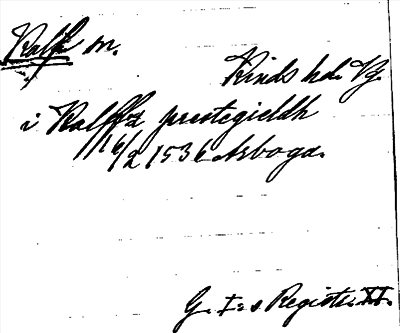 Kalf sn.
Kinds hd. Vg
i Kalffz prestegieldh
16/2 1536 Arboga.
G. I:s Registr. XI.